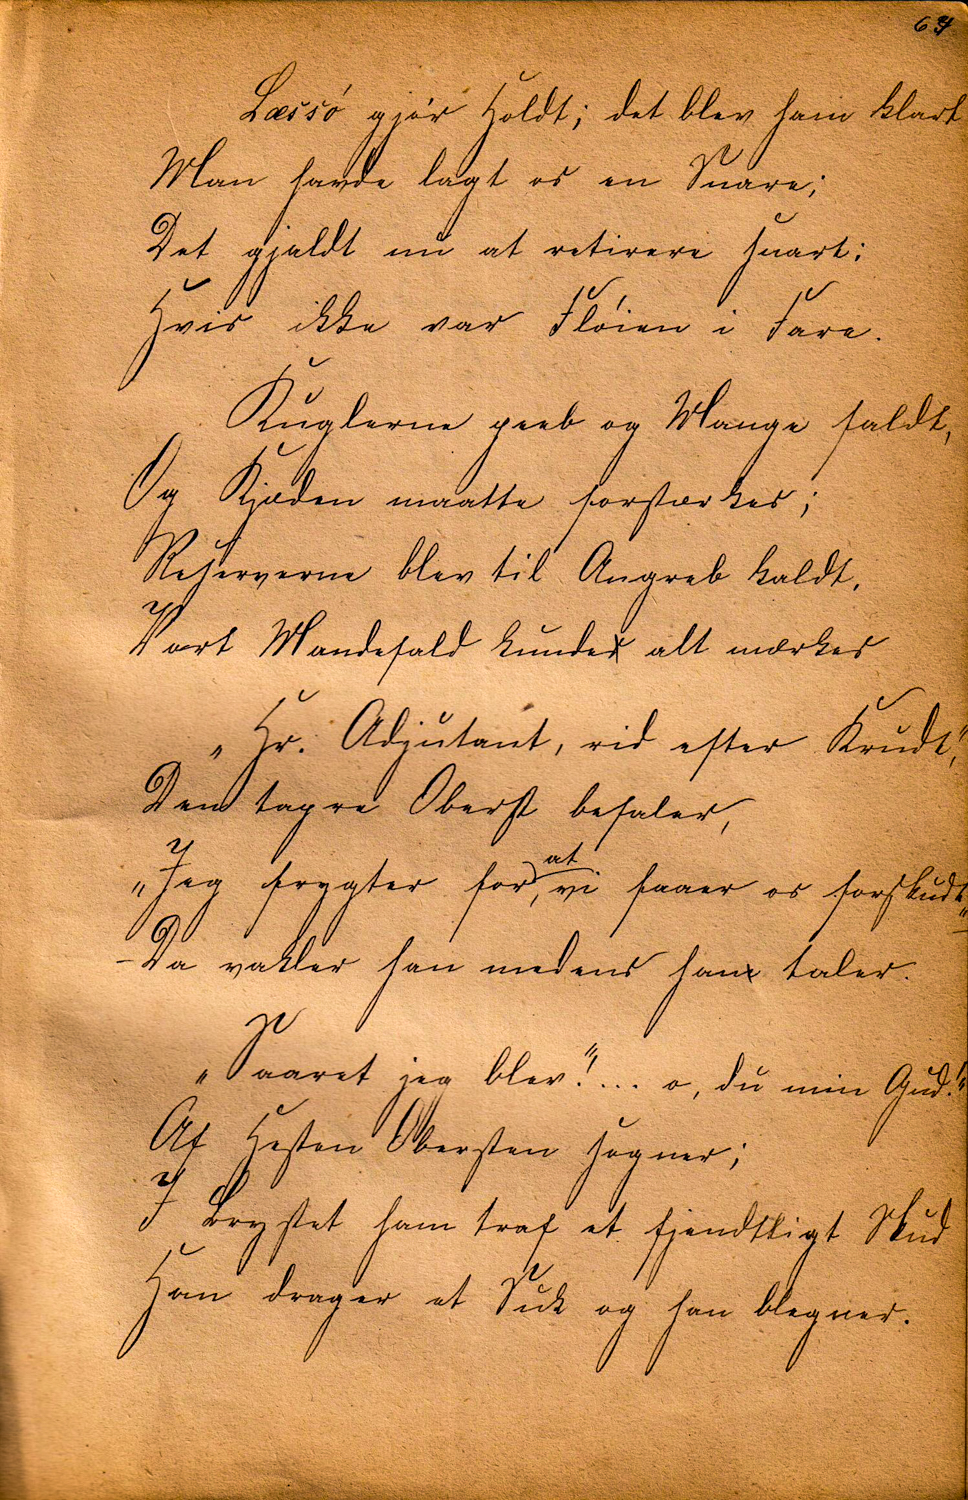 64
Læssó gjór Holdt; det blev ham klart
Man havde lagt os en Snare;
Det gjaldt nu at retirere snart:
Hvis ikke var Flóien i Fare.
Kuglerne peeb og Mange faldt,
Og Kjæden maatte forstærkes;
Reserverne blev til Angreb kaldt,
Vort Mandefald kunde alt mærkes
„Hr. Adjutant, rid efter Krudt,"
Den tapre Oberst befaler,
„Jeg frygter for, at vi faaer os forskudt"
– Da vakler han medens han taler.
„Saaret jeg blev!" .... o, du min Gud!"
Af Hesten Obersten segner;
I Brystet ham traf et fjendtligt Skud
Han drager et Suk og han blegner.